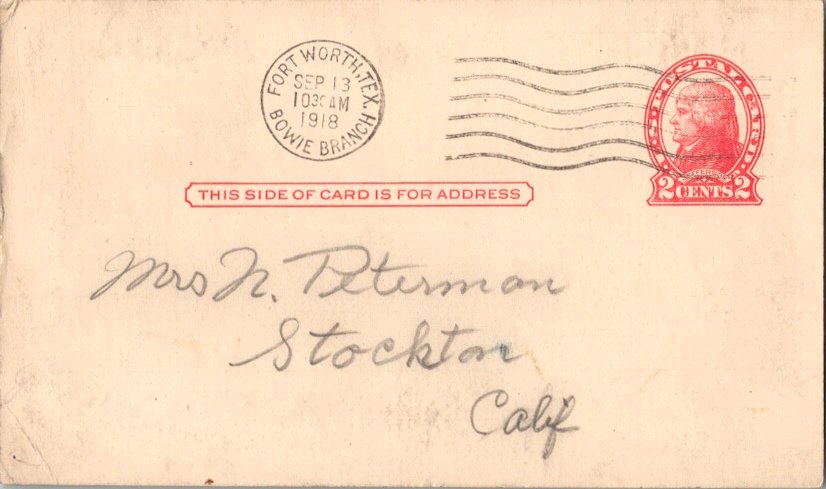 FORT WORTH, TEX.
SEP 13
1030AM
1918
BOWIE BRANCH
POSTAL CARD
JEFFERSON
2 CENTS 2
THIS SIDE OF CARD IS FOR ADDRESS
Mrs N. Peterman
Stockton
Calif